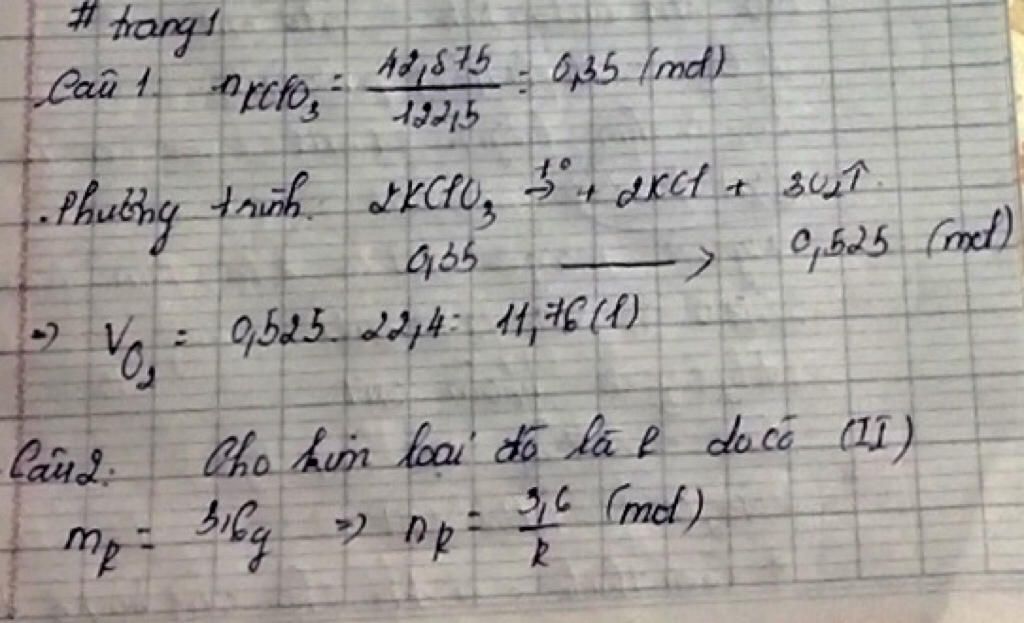 # trang 1
Câu 1. nKClO₃ = 42,875/122,5 = 0,35 (mol)
. Phương trình. 2KClO₃ t°→ + 2KCl + 3O₂↑.
0,35 ⟶ 0,525 (mol)
⇒ VO₂ = 0,525. 22,4 = 11,76 (l)
Câu 2: Cho kim loại đó là R do có (II)
mR = 3,6g ⇒ nR = 3,6/R (mol)